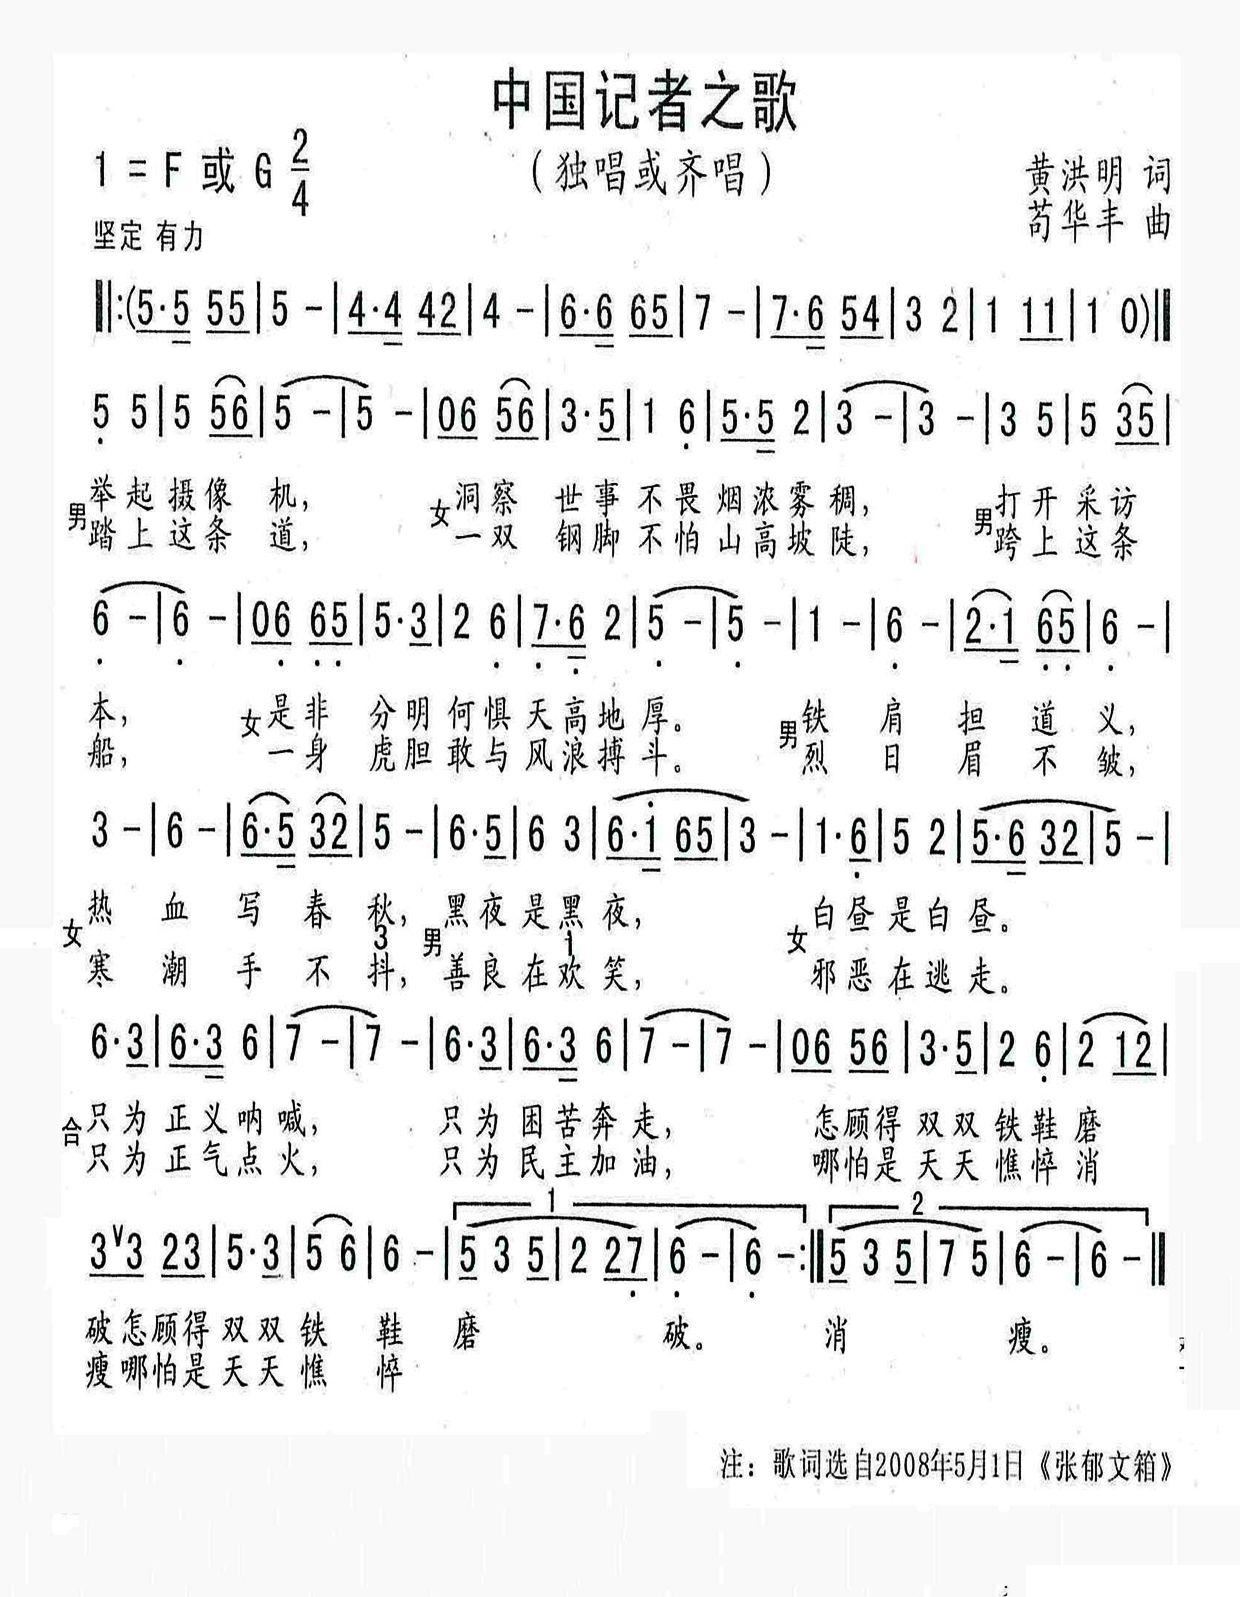 中国记者之歌
1=F或G 2/4
（独唱或齐唱）
黄洪明 词
坚定 有力
苟华丰 曲
‖:(5·5 55|5 -|4·4 42|4 -|6·6 65|7 -|7·6 54|3 2|1 11|1 0)‖
5 5|5 56|5 -|5 -|06 56|3·5|1 6|5·5 2|3 -|3 -|3 5|5 35|
男 举起摄像 机， 女 洞察 世事不畏烟浓雾稠， 男 打开采访
踏上这条 道， 一双 钢脚不怕山高坡陡， 跨上这条
6 -|6 -|06 65|5·3|2 6|7·6 2|5 -|5 -|1 -|6 -|2·1 65|6 -|
本， 女 是非 分明何惧天高地厚。 男 铁 肩 担 道 义，
船， 一身 虎胆敢与风浪搏斗。 烈 日 眉 不 皱，
3 -|6 -|6·5 32|5 -|6·5|6 3|6·1 65|3 -|1·6|5 2|5·6 32|5 -|
女 热 血 写 春 秋， 男 黑夜是黑夜， 女 白昼是白昼。
寒 潮 手 不 抖， 善良在欢笑， 邪恶在逃走。
3 1
6·3|6·3 6|7 -|7 -|6·3|6·3 6|7 -|7 -|06 56|3·5|2 6|2 12|
合 只为 正义呐喊， 只为 困苦奔走， 怎顾得 双双铁鞋磨
只为 正气点火， 只为 民主加油， 哪怕是 天天憔悴消
1 2
3ᵛ3 23|5·3|5 6|6 -|5 3 5|2 27|6 -|6 -:‖5 3 5|7 5|6 -|6 -‖
破怎顾得 双双铁 鞋 磨 破。 消 瘦。
瘦哪怕是 天天憔 悴
注：歌词选自2008年5月1日《张郁文箱》